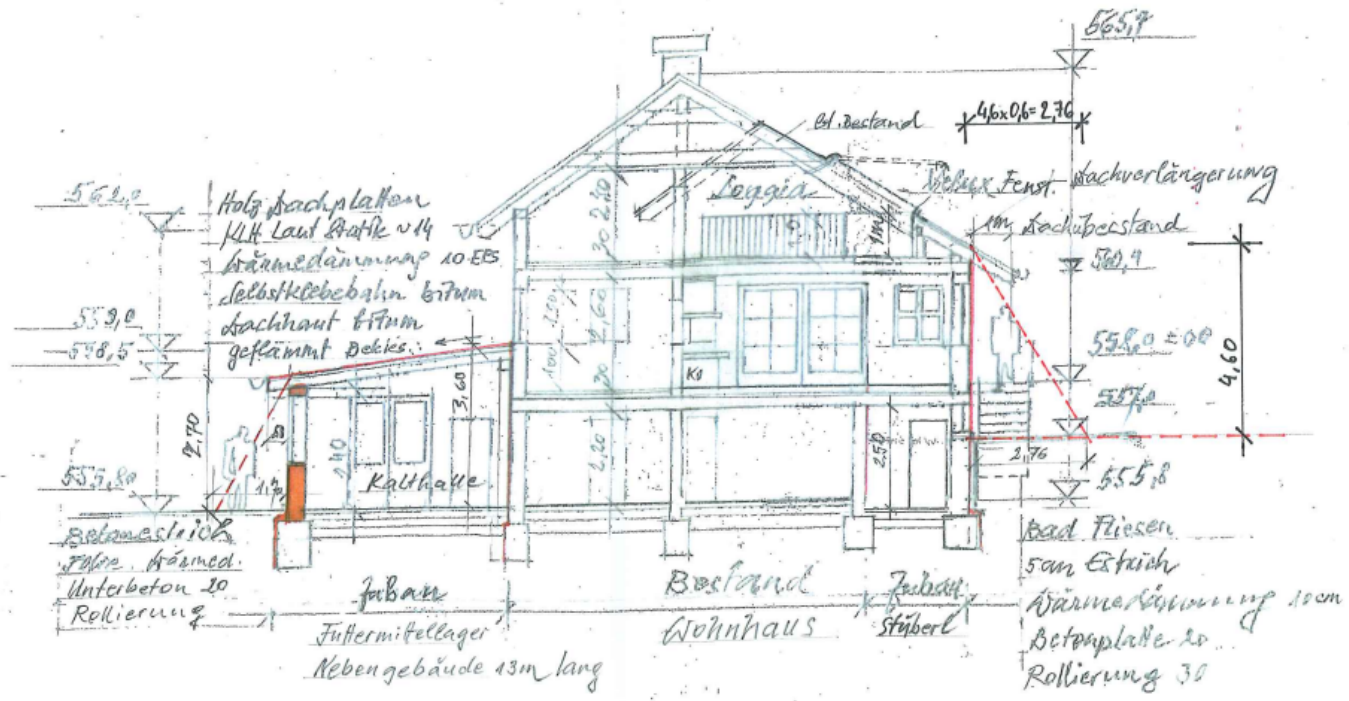 565,7
4,6x0,6=2,76
Bestand
Loggia
Velux Fenst. Dachverlängerung
1m Dachüberstand
562,0
Holz Dachplatten
KLH laut Statik
Wärmedämmung 10 EPS
Selbstklebebahn bitum
Dachhaut bitum
geflämmt Bekies.
559,0
558,5
555,80
2,70
2,40
3,60
Kalthalle
30 2,20
2,60
30
2,20
1m
KÜ
2,50
558,0 ±00
557,0
555,8
4,60
2,76
Betonestrich
Folie Wärmed.
Unterbeton 20
Rollierung
Zubau
Futtermittellager
Nebengebäude 13m lang
Bestand
Wohnhaus
Zubau
Stüberl
Bad Fliesen
5cm Estrich
Wärmedämmung 10cm
Betonplatte 20
Rollierung 30